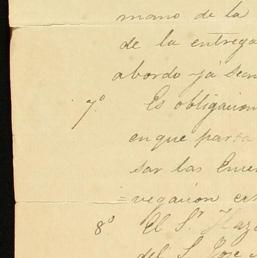 mano de la
de la entrega
abordo ya sean
7º Es obligacion
en que parta
sar las Emer
=vegacion
8º El Sr. Haza
del S. Jose